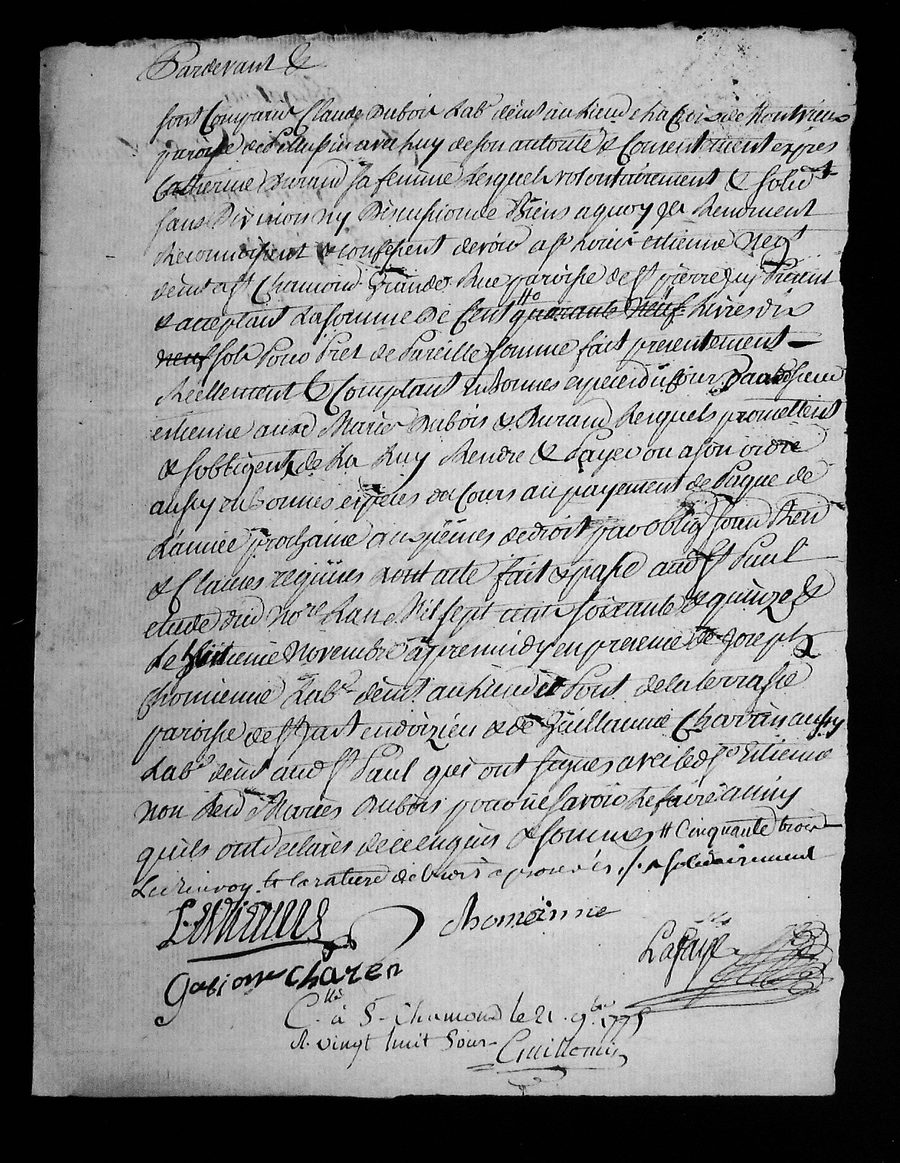 Pardevant &
sont Comparu Claude Dubois Lab.r demt au lieu de la Croix de Montvieu
paroisse de Pelussin avec luy de son autorité & Consentement expres
Catherine Durand sa femme Lesquels volontairement & solid.t
sans Division ny Discussion de Biens a quoy ils Renoncent
Reconnoissent & confessent devoir a Sr Louis etienne Negt
demt a St Chamond Grande Rue paroisse de St pierre icy Present
& acceptant La somme De Cent # quarante Neuf Livres dix
neuf sols Pour Pret de Pareille somme fait presentement
Reellement & Comptant en bonnes especes du Cour par led sieur
etienne auxd Mariés Dubois & Durand Lesquels promettent
& sobligent de La Luy Rendre & Payer ou a son ordre
aussy en bonnes especes de Cours au payement de Paque de
Lannée prochaine aux peines de droit par oblig soum Ren
& Clauses requises dont acte fait & passé aud St Paul
etude dud no.re Lan Mil sept cent soixante & quinze &
Le huitieme Novembre apres midy en presence de Joseph
Chomienne Lab.r demt au Lieu du Pont de la terrasse
paroisse de St Just en doizieu & de Guillaume Charrin aussy
Lab.r demt aud St Paul qui ont signés avec led Sr Etienne
non Lesd Mariés Dubois pour ne savoir Le faire ainsy
quils ont declarés de ce enquis & sommes # Cinquante trois
Le renvoy & la rature de mots approuvés ./. & solidairement
L. etienne chomienne
Lafaye
Charen
C.lé à St Chamond le 21 9bre 1775
R. vingt huit sous
Guillemin